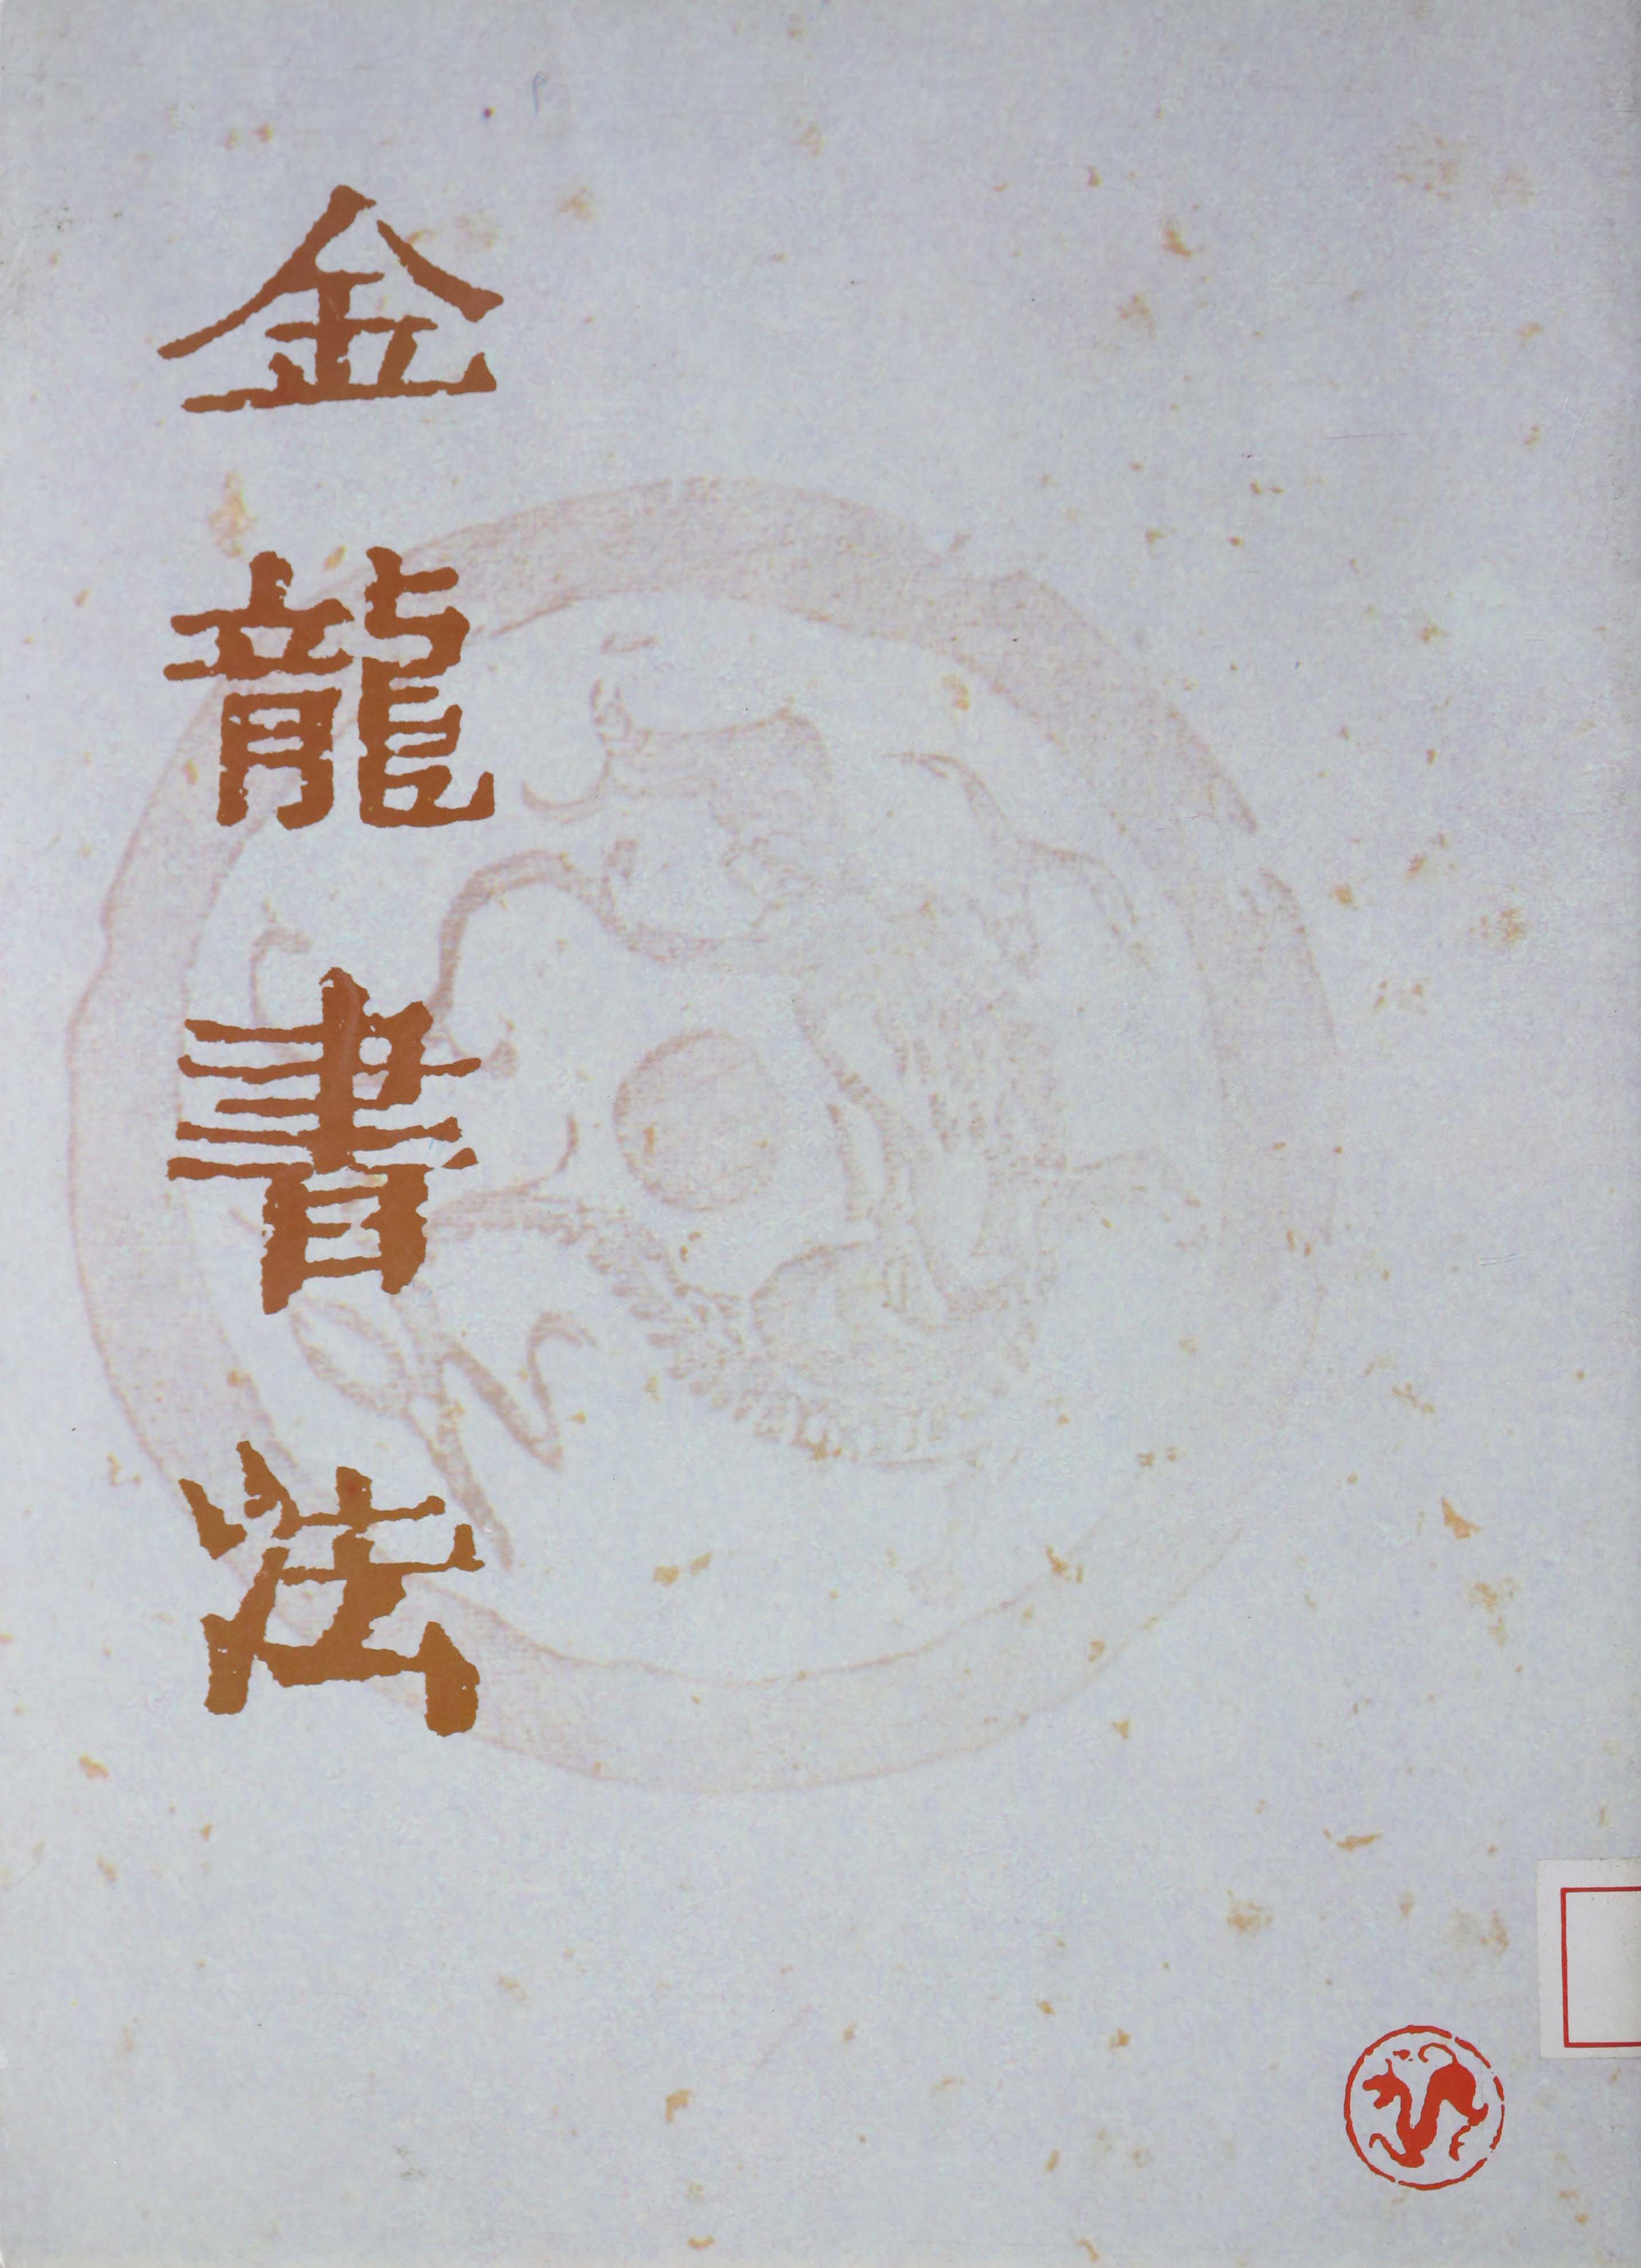 金龍書法